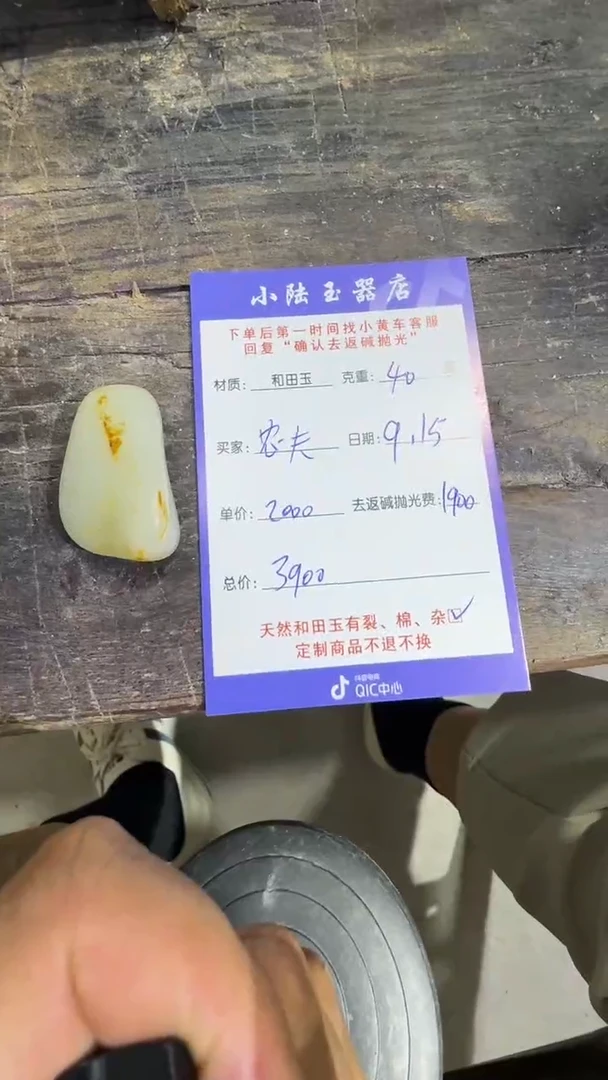 小陆玉器店
下单后第一时间找小黄车客服
回复“确认去返碱抛光”
材质: 和田玉 克重: 40
买家: 农夫 日期: 9.15
单价: 2000 去返碱抛光费: 1900
总价: 3900
天然和田玉有裂、棉、杂☑
定制商品不退不换
抖音电商
QIC中心